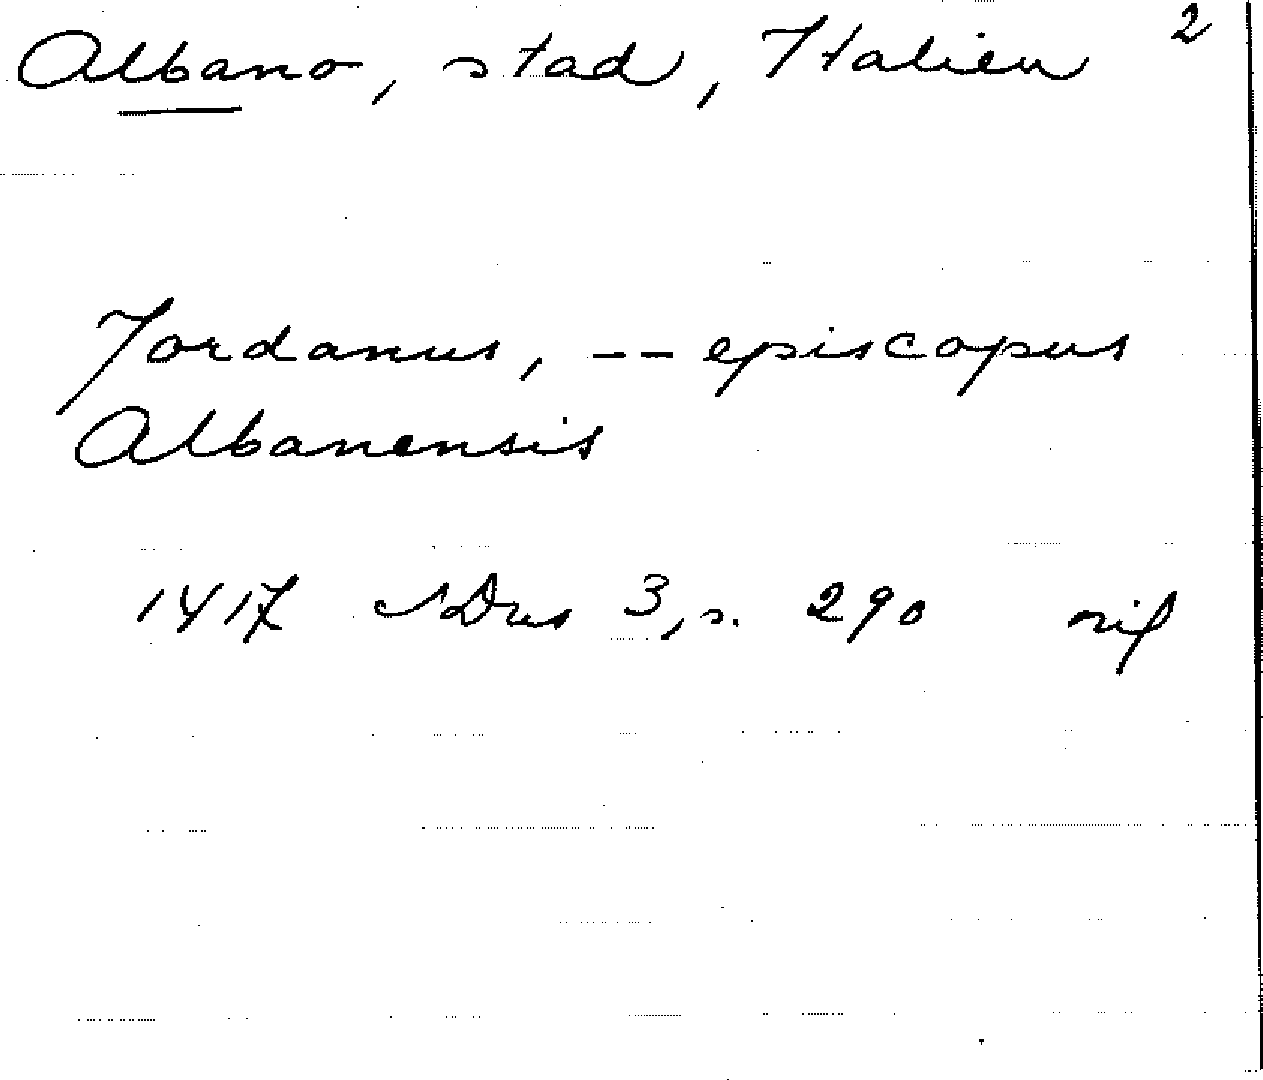 Albano, stad, Italien 2
Jordanus, -- episcopus
Albanensis
1417 SDns 3, s. 290 rif